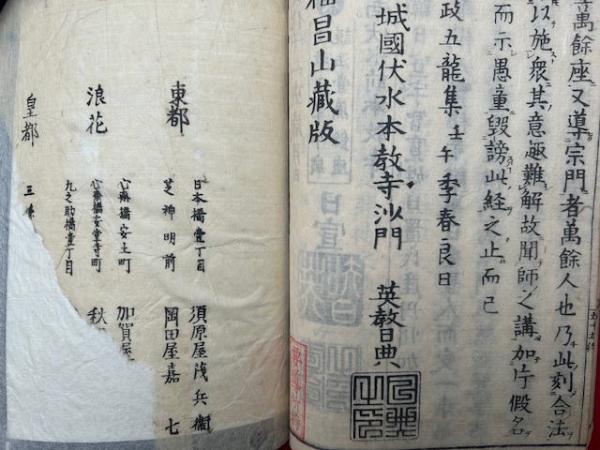 萬餘座又導宗門者萬餘人也乃此刻合法
以施衆其意趣難解故聞師之講加片假名
而示愚童毀謗此経之止而已
政五龍集壬午季春良日
城國伏水本教寺沙門 英智日典
福昌山藏版
東都 日本橋壹丁目 須原屋茂兵衞
芝神明前 岡田屋嘉七
浪花 心斎橋安土町 加賀屋
心斎橋安堂寺町 秋
九之助橋壹丁目
皇都 三